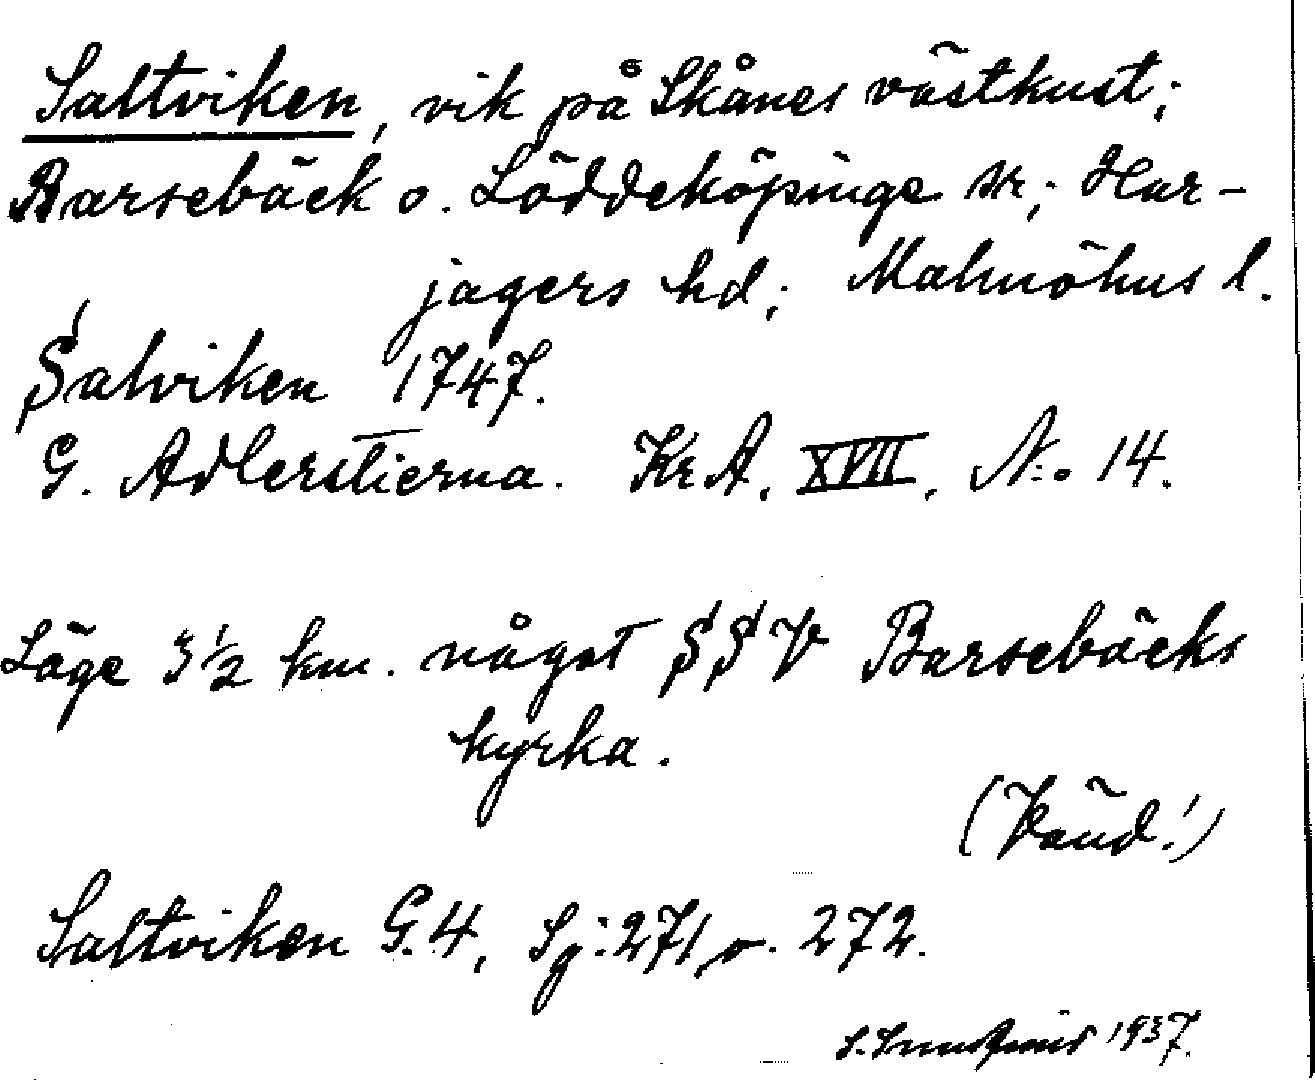 Saltviken, vik på Skånes västkust;
Barsebäck o. Löddeköpinge sn; Har-
jagers hd; Malmöhus l.
Salviken 1747.
G. Adlerstierna. KrA. XVII. N:o 14.
Läge 3 1/2 km. något SSV Barsebäcks
kyrka.
(Vänd!)
Saltviken G.4, Sg:271, o. 272.
1937.